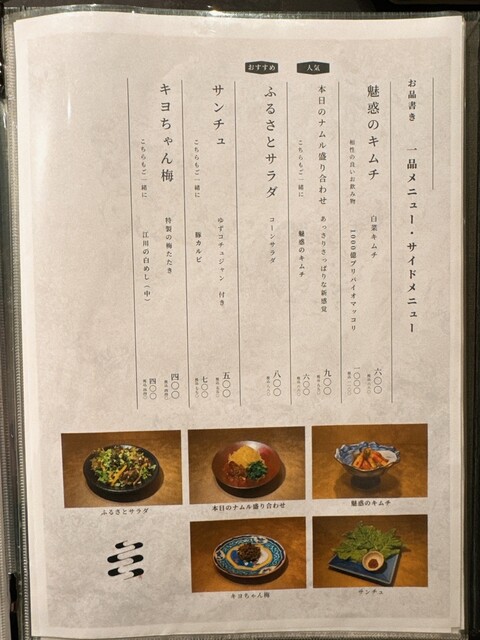 お品書き 一品メニュー・サイドメニュー
魅惑のキムチ 白菜キムチ 六〇〇
相性の良いお飲み物 1000億プリバイオマッコリ 一〇〇〇
人気
本日のナムル盛り合わせ あっさりさっぱりな新感覚 九〇〇
こちらもご一緒に 魅惑のキムチ 六〇〇
おすすめ
ふるさとサラダ コーンサラダ 八〇〇
サンチュ ゆずコチュジャン 付き 五〇〇
こちらもご一緒に 豚カルビ 七〇〇
キヨちゃん梅 特製の梅たたき 四〇〇
こちらもご一緒に 江川の白めし(中) 四〇〇
ふるさとサラダ
本日のナムル盛り合わせ
魅惑のキムチ
キヨちゃん梅
サンチュ